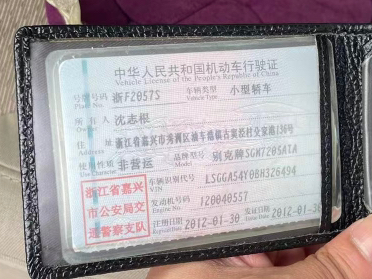 中华人民共和国机动车行驶证
Vehicle License of the People's Republic of China
号牌号码 浙F2057S 车辆类型 小型轿车
Plate No. Vehicle Type
所有人 沈志根
Owner
住址 浙江省嘉兴市秀洲区油车港镇古窦泾村
Address
使用性质 非营运 品牌型号 别克牌SGM7205ATA
Use Character Model
浙江省嘉兴
市公安局交
通警察支队
车辆识别代号 LSGGA54Y0BH326494
VIN
发动机号码 120040557
Engine No.
注册日期 2012-01-30 发证日期 2012-01-30
Register Date Issue Date